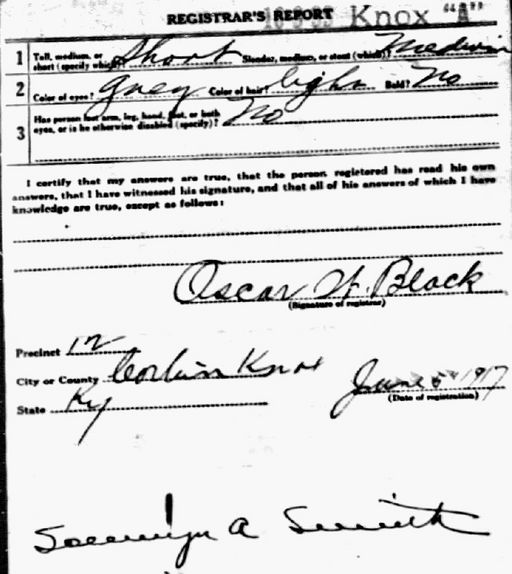 REGISTRAR'S REPORT Knox "A"
1 Tall, medium, or short (specify which)? Short Slender, medium, or stout (which)? Medium
2 Color of eyes? Grey Color of hair? light Bald? No
3 Has person lost arm, leg, hand, foot, or both eyes, or is he otherwise disabled (specify)? No
I certify that my answers are true, that the person registered has read his own
answers, that I have witnessed his signature, and that all of his answers of which I have
knowledge are true, except as follows:
Oscar W. Black
(Signature of registrar)
Precinct 12
City or County Corbin Knox
State Ky
June 5 1917
(Date of registration)
A Smith